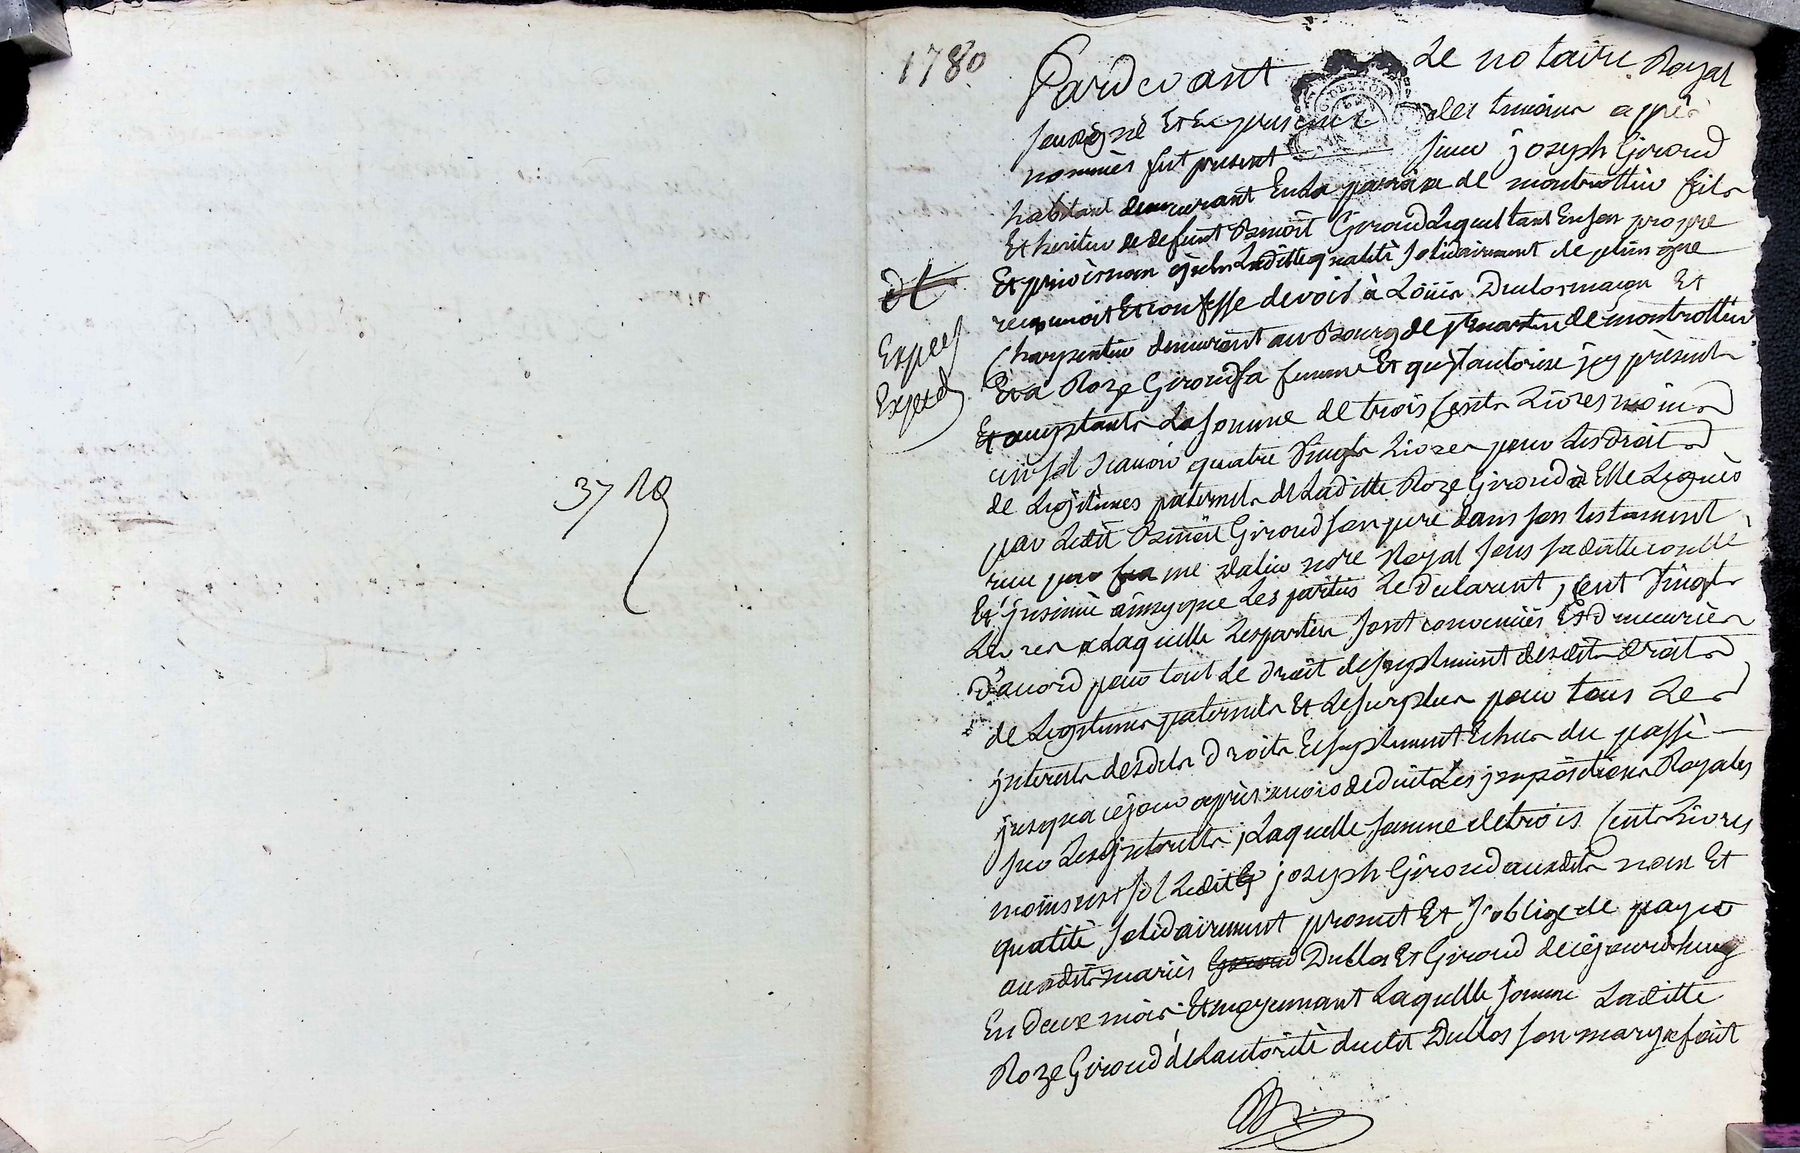 37 RQ
1780
Pardevant Le notaire Royal
soussigné Et En presence des temoins appres
nommés fut present sieur joseph Giroud
habitant demeurant En La parroisse de montrottier fils
Et heritier de defunt Benoit Giroud Lequel tant En son propre
Et privé nom qu'en Laditte qualité solidairement de plein gré
reconnoit Et confesse devoir à Loüis Duclos maçon Et
Charpentier demeurant au Bourg de st martin de montrottier
Et a Roze Giroud sa femme Et qu'il autorise jcy présents
Et acceptants La somme de trois Cents Livres moins
un sol scavoir quatre Vingts Livres pour Les droits
de Legitimes paternels de Laditte Roze Giroud à Elle Legués
par Ledit Benoit Giroud son pere dans son testament
recu par me dalin nore Royal sous sa datte controllé
Et jnsinué ainsy que Les parties Le declarent, Cent Vingt
Livres a Laquelle Les parties sont convenües Et demeuriés
d'accord pour tout Le droit de suplement desdits droits
de Legitimes paternels Et Le surplus pour tous Les
jnterets desdits droits Et suplement Echus du passé
jusqua ce jour après avoir deduit Les jmpositions Royales
sur Les jnterets, Laquelle somme de trois Cents Livres
moins un sol Ledit joseph Giroud auxdits nom Et
qualité solidairement promet Et s'oblige de payer
auxdits mariés Giroud Duclos Et Giroud de cejourdhuy
En deux mois Et moyennant Laquelle somme Laditte
Roze Giroud de Lautorité dudit Duclos son mary a fait
dt
Exped
Exped